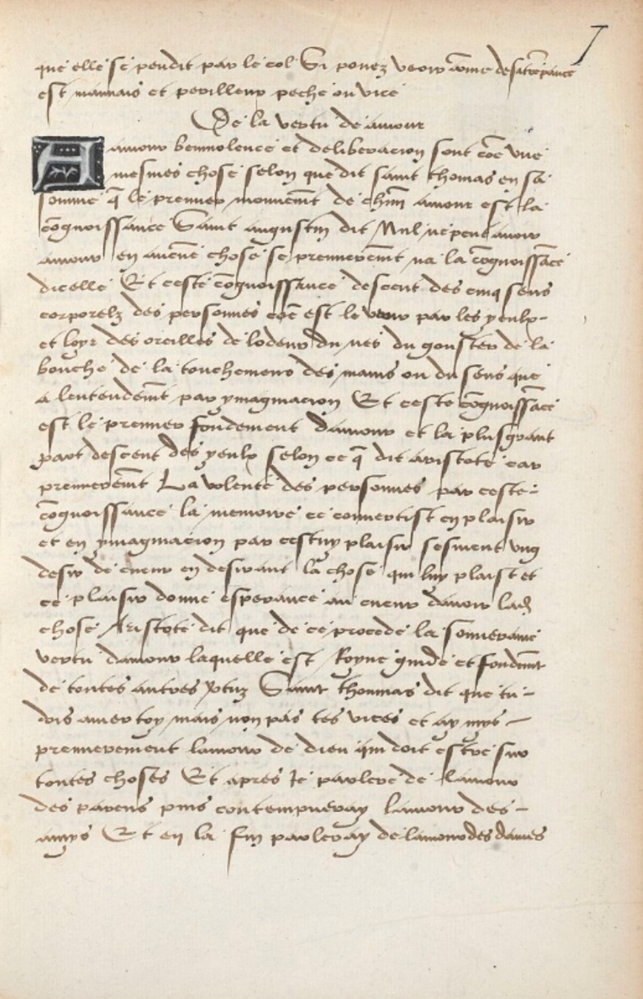 7
que elle se pendit par le col Si povez veoir cõme desatrẽpance
est mauvais et perilleux peche ou vice
De la vertu de amour
Amour benivolence et deliberacion sont cõe une
mesmes chose selon que dit saint thomas en sa
somme q̃ le premier mouvemẽt de chũn amour est la
cõgnoissance Saint augustin dit Nul ne peut avoir
amour en aucune chose se premieremẽt na la cõgnoissãce
dicelle Et ceste cõgnoissance descent des cinq sens
corporelz des personnes cõe est le veoir par les yeulx
et loyr des oreilles de lodeur du nes du gouster de la
bouche de la touchement des mains ou du sens que
a lentendemẽt par ymaginacion Et ceste cõgnoissãce
est le premier fondement damour et la plusgrant
part descent des yeulx selon ce q̃ dit aristote car
premieremẽt La volente des personnes par ceste
cõgnoissance la memoire ce convertist en plaisir
et en ymaginacion par cestuy plaisir sesmeut ung
desir de cueur en desirant la chose qui luy plaist et
ce plaisir donne esperance au cueur davoir lad
chose Aristote dit que de ce procede la souveraine
vertu damour laquelle est Royne guide et fondemẽt
de toutes autres vertuz Saint thommas dit que tu
dois amer toy mais non pas tes vices et ay mys
premierement lamour de dieu qui doit estre sur
toutes choses Et apres Je parlere de lamour
des parens puis contempueray lamour des
amys Et en la fin parleray de lamour des dames